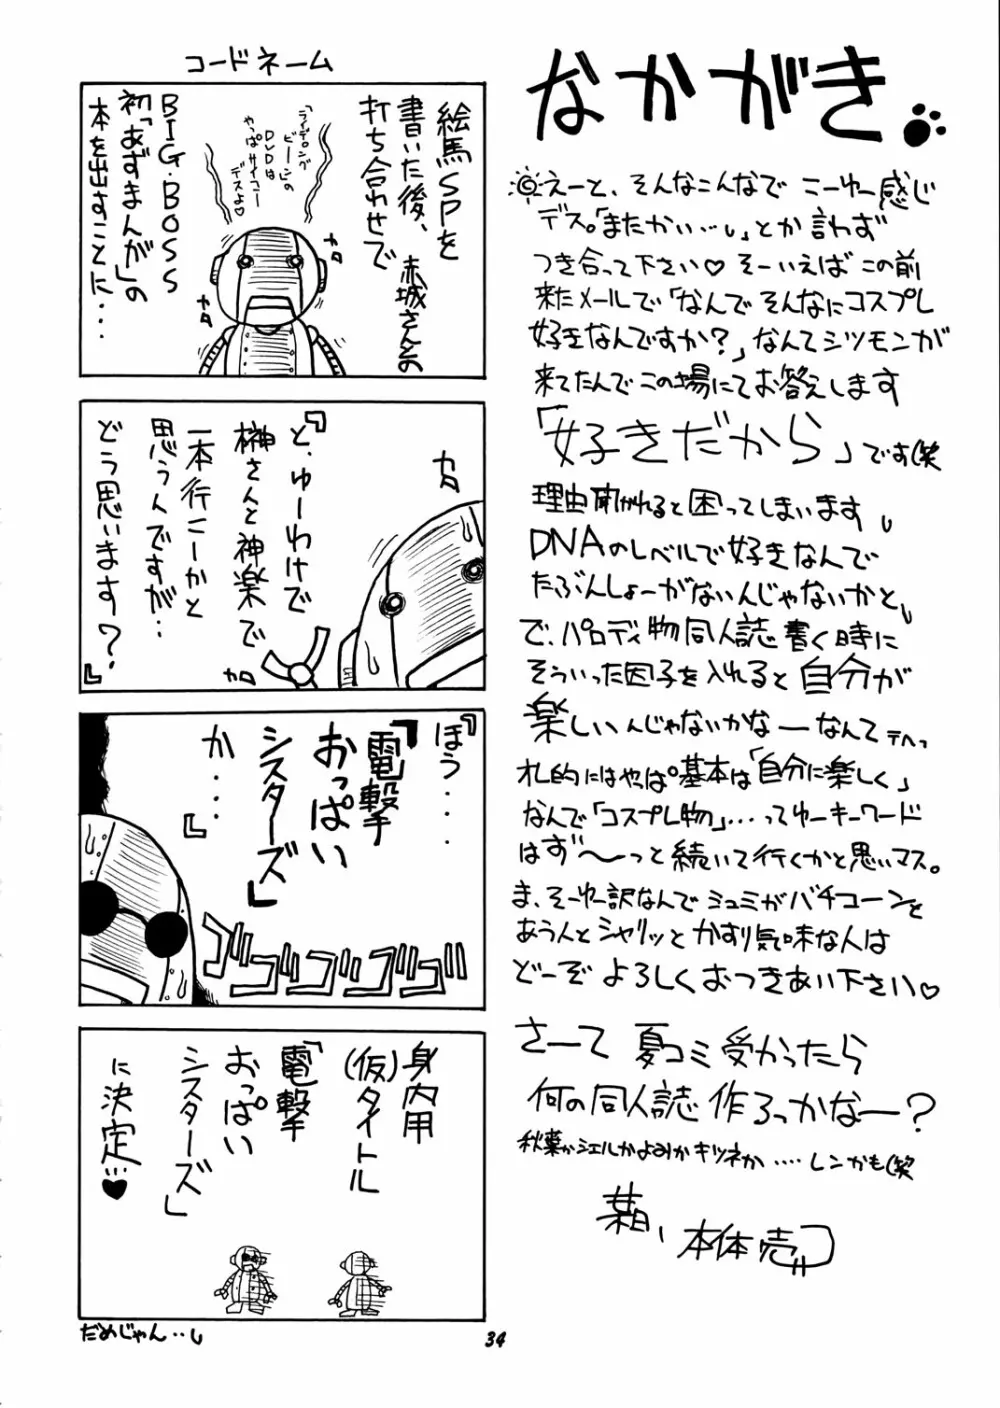 なかがき
えーと、そんなこんなで こーゆー感じ
デス。「またかい…」とか言わず
つき合って下さい♡ そーいえば この前
来たメールで「なんで そんなにコスプレ
好きなんですか?」なんてシツモンが
来てたんで この場にてお答えします
「好きだから」です(笑
理由聞かれると困ってしまいます
DNAのレベルで好きなんで
たぶんしょーがないんじゃないかと
で、パロディ物同人誌書く時に
そういった因子を入れると自分が
楽しいんじゃないかなーなんて テヘっ
私的にはやっぱ基本は「自分に楽しく」
なんで「コスプレ物」…ってゆーキーワード
はず〜っと続いて行くかと思いマス。
ま、そーゆー訳なんで シュミがバチコーンと
あう人とシャリッとかすり気味な人は
どーぞ よろしくおつきあい下さい♡
さーて 夏コミ受かったら
何の同人誌 作ろっかなー?
秋葉かシエルかよみかキツネか‥‥レンかも(笑
本体売
コードネーム
絵馬SPを
書いた後、赤城さんとの
打ち合わせで
「ライデロング
ビーン」の
DVDは
やっぱサイコー
デスよ♡
BIG・BOSS
初「あずまんが」の
本を出すことに…
カロ
カロ
『と、ゆーわけで
榊さんと神楽で
一本行こーかと
思うんですが…
どう思います?』
カロ
カロ
『ほう‥‥
「電撃
おっぱい
シスターズ」
か‥‥』
ゴゴゴゴゴ
身内用
(仮)タイトル
「電撃
おっぱい
シスターズ」
に決定…♥
だめじゃん‥
34